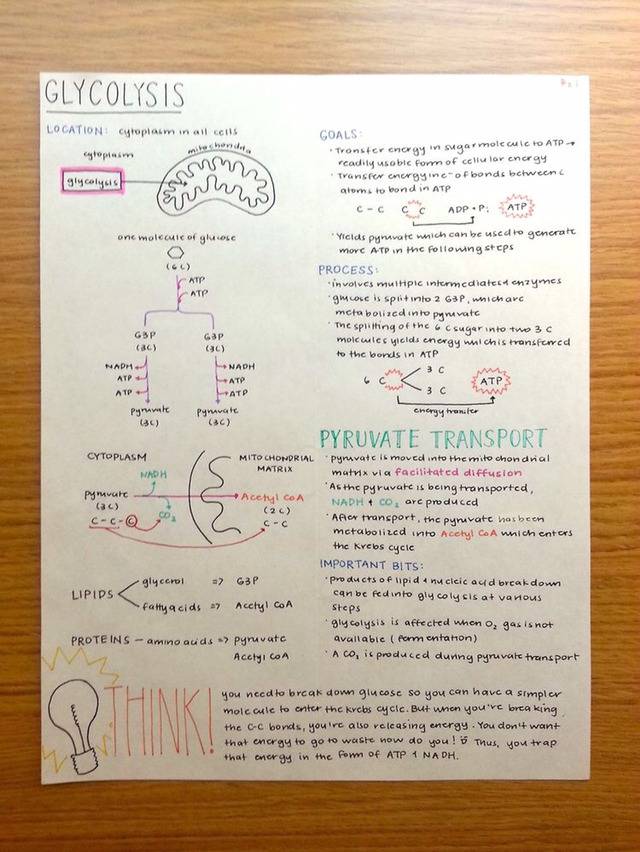 GLYCOLYSIS
LOCATION: cytoplasm in all cells
cytoplasm
mitochondria
glycolysis
one molecule of glucose
(6C)
ATP
ATP
G3P
(3C)
G3P
(3C)
NADH
ATP
ATP
NADH
ATP
ATP
pyruvate
(3C)
pyruvate
(3C)
CYTOPLASM
MITOCHONDRIAL
MATRIX
NADH
pyruvate
(3C)
C-C-C
CO2
Acetyl CoA
(2C)
C-C
LIPIDS
glycerol => G3P
fatty acids => Acetyl CoA
PROTEINS - amino acids => pyruvate
Acetyl CoA
GOALS:
· Transfer energy in sugar molecule to ATP →
readily usable form of cellular energy
· Transfer energy in e- of bonds between C
atoms to bond in ATP
C-C C C ADP + Pi ATP
· Yields pyruvate which can be used to generate
more ATP in the following steps
PROCESS:
· involves multiple intermediates & enzymes
· glucose is split into 2 G3P, which are
metabolized into pyruvate
· The splitting of the 6 C sugar into two 3 C
molecules yields energy which is transferred
to the bonds in ATP
6 C
3 C
3 C
ATP
energy transfer
PYRUVATE TRANSPORT
· pyruvate is moved into the mitochondrial
matrix via facilitated diffusion
· As the pyruvate is being transported,
NADH + CO2 are produced
· After transport, the pyruvate has been
metabolized into Acetyl CoA which enters
the Krebs cycle
IMPORTANT BITS:
· products of lipid & nucleic acid breakdown
can be fed into glycolysis at various
steps
· glycolysis is affected when O2 gas is not
available (fermentation)
· A CO2 is produced during pyruvate transport
THINK!
you need to break down glucose so you can have a simpler
molecule to enter the krebs cycle. But when you're breaking
the C-C bonds, you're also releasing energy. You don't want
that energy to go to waste now do you! Thus, you trap
that energy in the form of ATP & NADH.